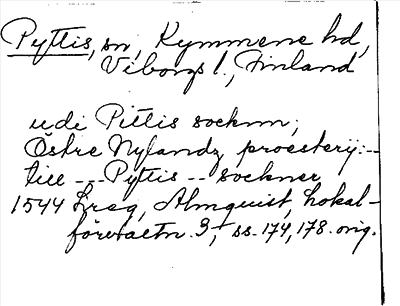 Pyttis, sn, Kymmene hd,
Viborgs l., Finland
udi Pittis socknn;
Östre Nylandz proesterij:-
till --- Pyttis -- sockner
1544 Almquist, Lokal-
förvaltn. 3, ss. 174, 178. orig.